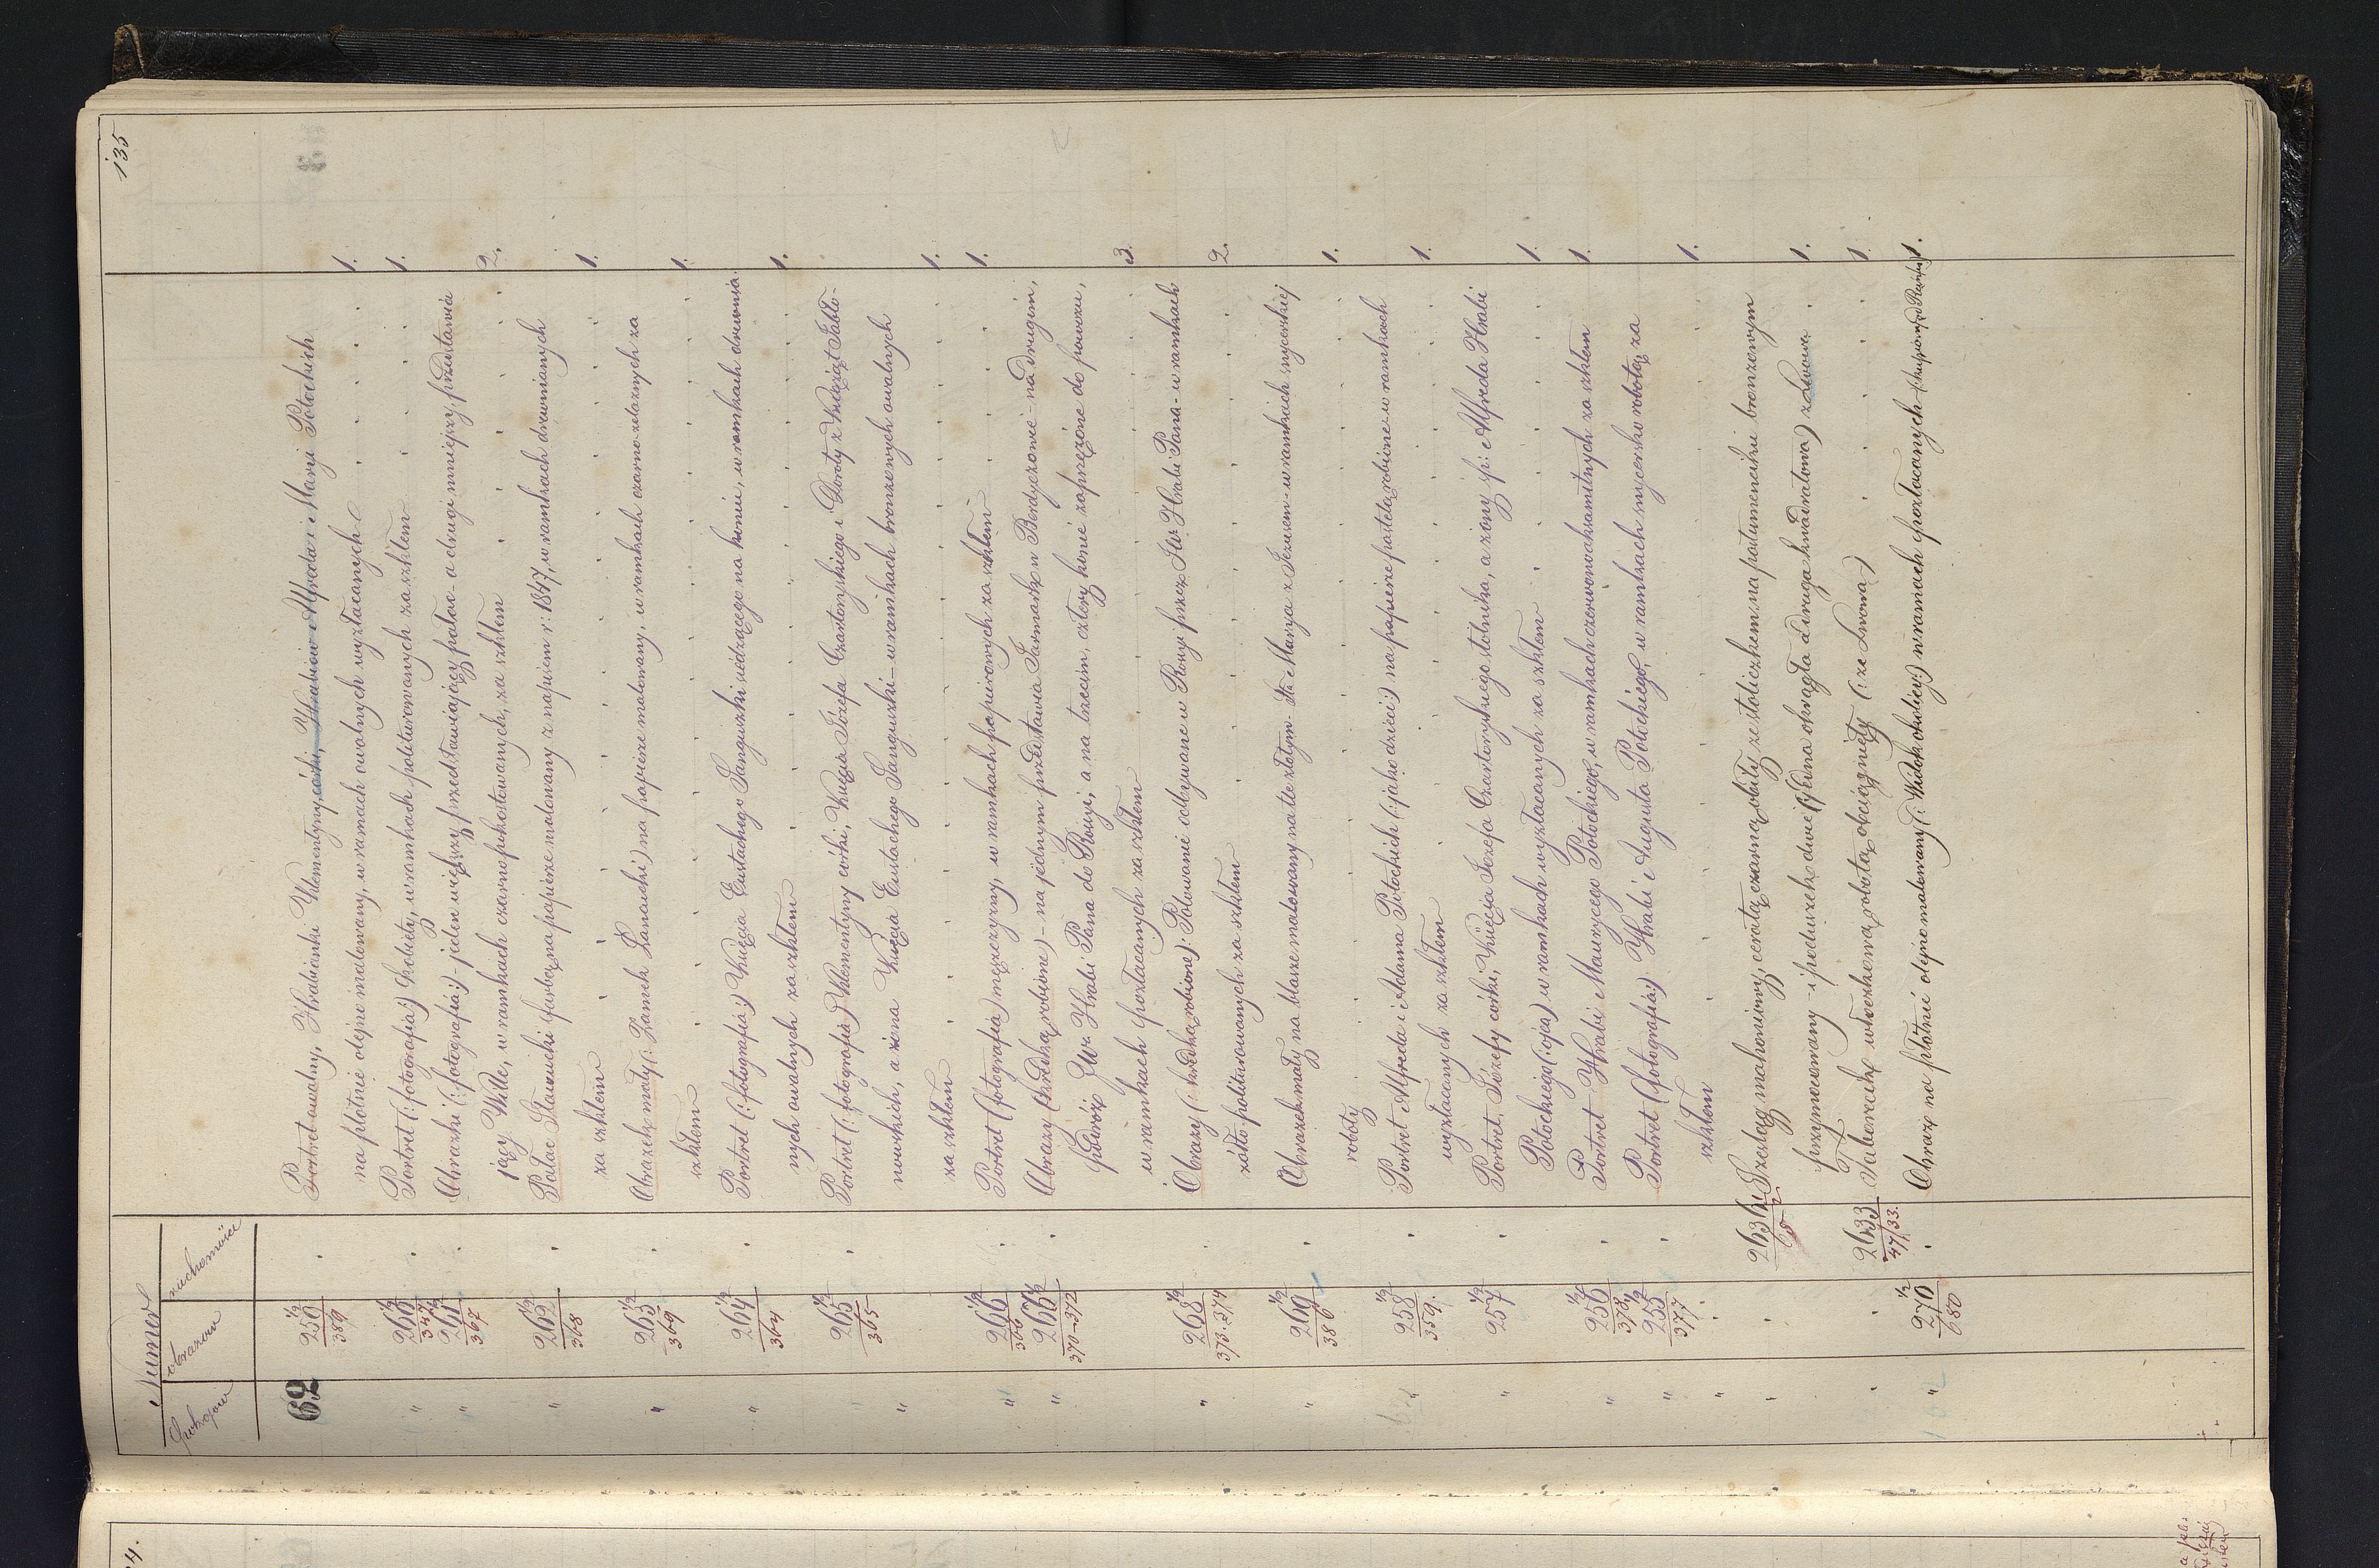 135
Numer
pokoju obrazu ruchomości
62 259½ 389 Portret owalny, Hrabianki Klementyny, córki, Hrabiów Alfreda i Maryi Potockich
na płótnie olejno malowany, w ramach owalnych wyzłacanych 1.
" 260½ 347 Portret (: fotografia :) kobiety, w ramkach politurowanych za szkłem 1.
" 261½ 367 Obrazki (: fotografia :) - jeden większy przedstawiający pałac - a drugi mniejszy, przedstawia
jący Wille, w ramkach czarno pokostowanych, za szkłem 2.
" 262½ 368 Pałac Sławucki farbą na papierze malowany z napisem r: 1847, w ramkach drewnianych
za szkłem 1.
" 263½ 369 Obrazek mały (: Zamek Łańcucki) na papierze malowany, w ramkach czarno żelaznych za
szkłem 1.
" 264½ 364 Portret (: fotografia :) Księcia Eustachego Sanguszki siedzącego na koniu, w ramkach drewnia
nych owalnych za szkłem 1.
" 265½ 365 Portret (: fotografia) Klementyny córki, Księcia Józefa Czartoryskiego i Doroty z Książąt Jabło-
nowskich, a żona Księcia Eustachego Sanguszki - w ramkach bronzowych owalnych
za szkłem 1.
" 266½ 366 Portret (fotografia) mężczyzny, w ramkach papierowych za szkłem 1.
" 267½ 370-372 Obrazy (kredką robione) - na jednym przedstawia Jarmark w Berdyczowie - na drugim,
podwóż JWr. Hrabi Pana do Rosyi, a na trzecim, cztery konie zaprzężone do powozu,
w ramkach pozłacanych za szkłem 3.
" 268½ 373. 374 Obrazy (: kredką robione): Polowanie odbywane w Rosyi przez JWr. Hrabi Pana - w ramkach
żółto politurowanych za szkłem 2.
" 269½ 386 Obrazek mały na blasze malowany na tle złotym Sta Marya z Jezusem - w ramkach snycerskiej
roboty 1.
" 258½ 359. Portret Alfreda i Adama Potockich (: jako dzieci :) na papierze pastelą robione w ramkach
wyzłacanych za szkłem 1.
" 257½ Portret, Józefy córki, Księcia Józefa Czartoryskiego stolnika, a żony śp: Alfreda Hrabi
Potockiego (: ojca) w ramkach wyzłacanych za szkłem 1.
" 256½ 378 Portret Hrabi Maurycego Potockiego, w ramkach czerwono aksamitnych za szkłem 1.
" 255½ 377 Portret (fotografia :) Hrabi Augusta Potockiego, w ramkach snycerską robotą, za
szkłem 1.
" 2636½ Szezląg mahoniowy, ceratą czarną obity ze stoliczkiem na postumenciku bronzowym
przymocowany - i poduszek dwie (: jedna okrągła druga kwadratowa) z Lwowa 1.
2633 47/33. Taborecik włóczkową robotą obciągnięty (: ze Lwowa) 1.
" 270½ 680 Obraz na płótnie olejno malowany (: Widok okolicy:) w ramach pozłacanych 1.